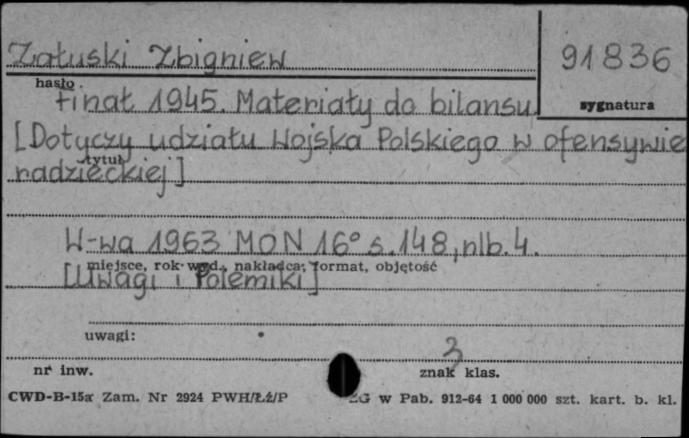 Załuski Zbigniew
91836
hasło
sygnatura
Finał 1945. Materiały do bilansu.
[Dotyczy udziału Wojska Polskiego w ofensywie
tytuł
radzieckiej]
W-wa 1963 MON 16° s. 148, nlb. 4.
miejsce, rok wyd., nakładca, format, objętość
[Uwagi i Polemiki]
uwagi:
3
nr inw.
znak klas.
CWD-B-15a Zam. Nr 2924 PWH/Łź/P ZG w Pab. 912-64 1 000 000 szt. kart. b. kl.